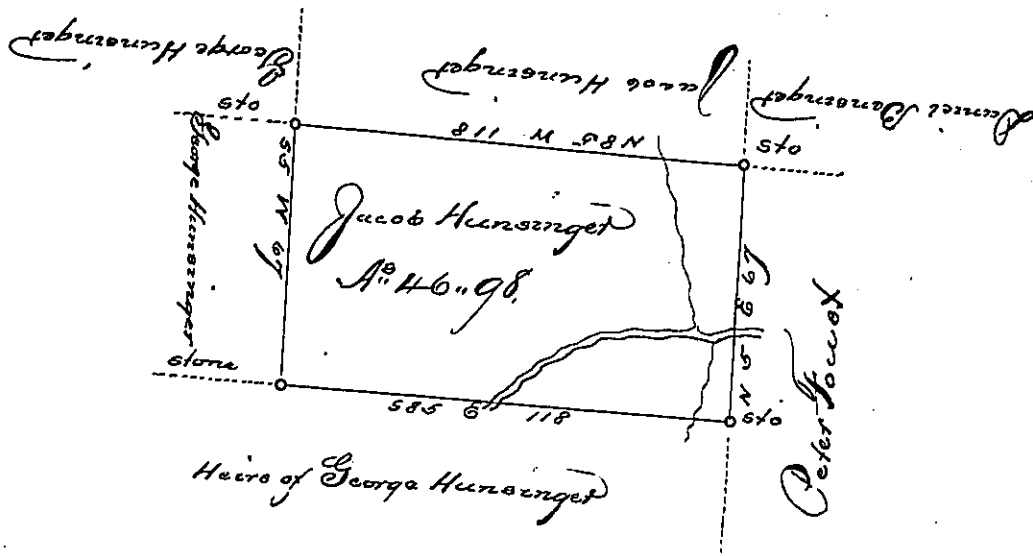 George Hunsinger
Jacob Hunsinger
Daniel Hunsinger
Sto
N85 W 118
Sto
George Hunsinger
S5 W 67
Jacob Hunsinger
A.s 46"98.
N 5 E 67
Peter Foucx
Stone
S85 E 118
Sto
Heirs of George Hunsinger